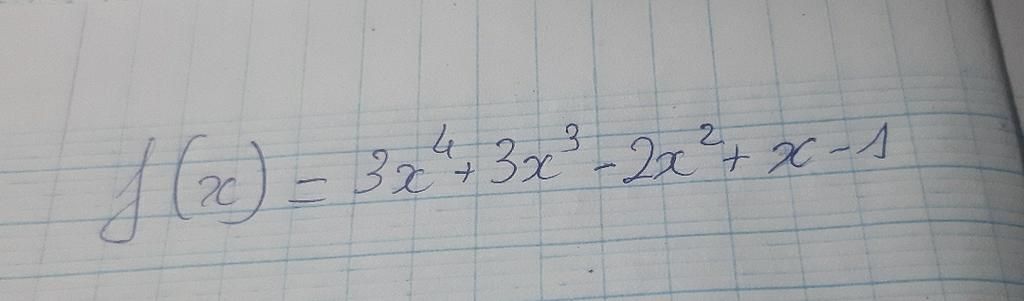 f(x) = 3x⁴ + 3x³ - 2x² + x - 1